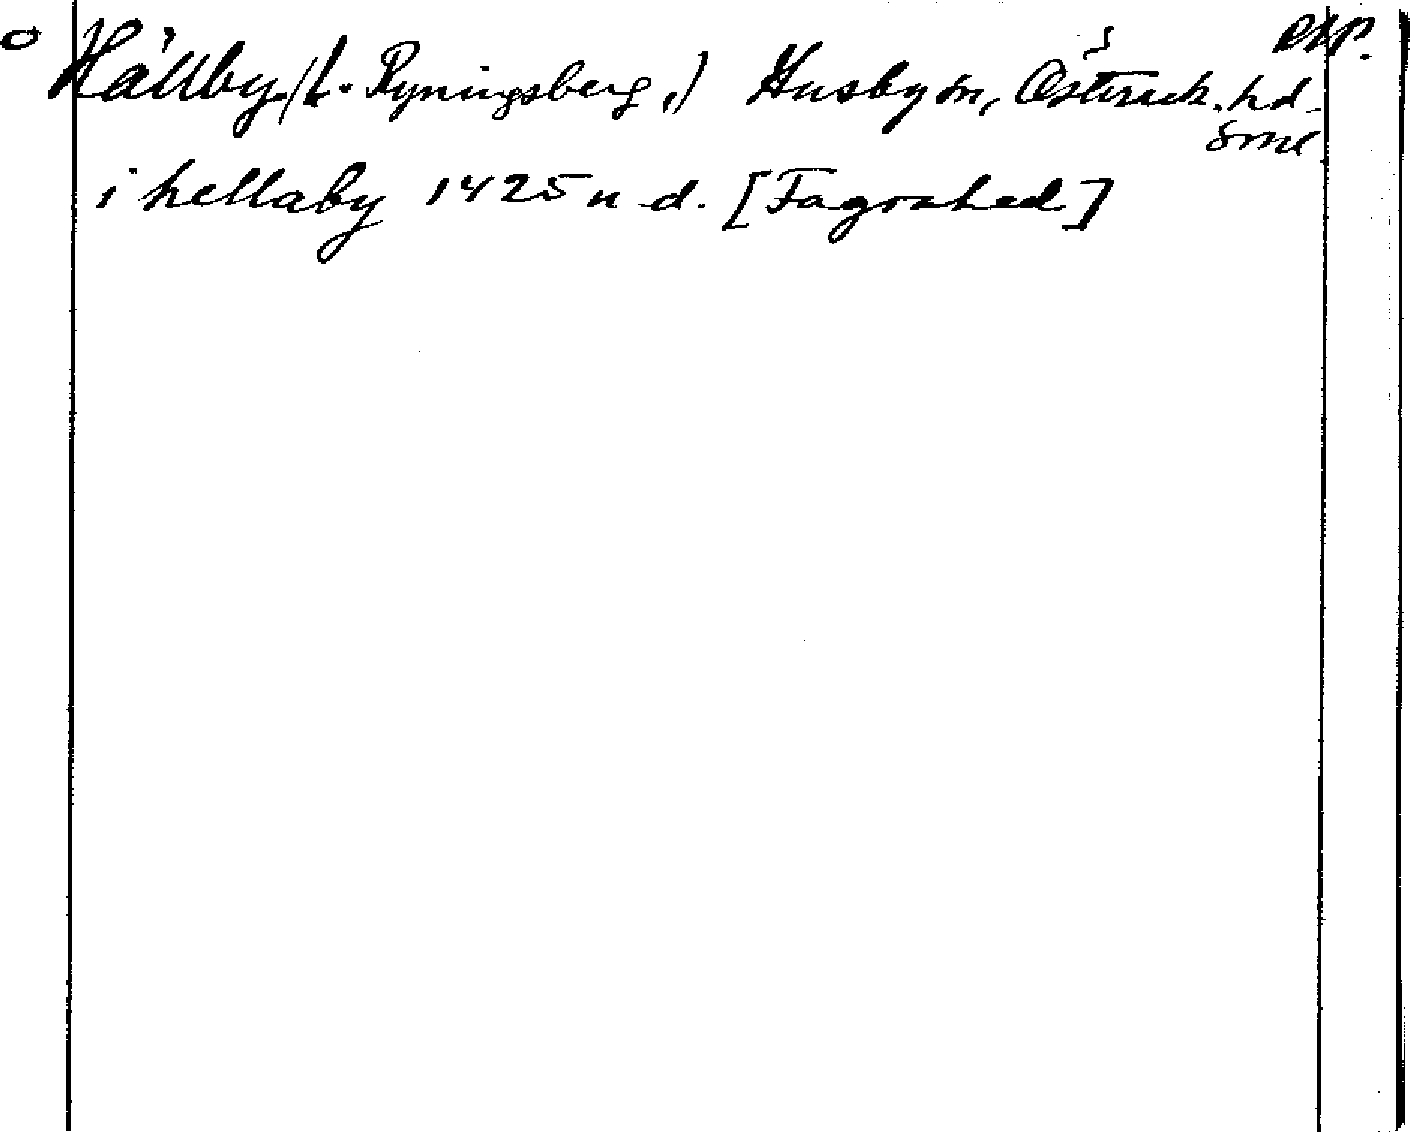 o Hällby, (f. Ryningsberg,) Husby sn, Österrek. hd
Sml
i hellaby 1425 n d. [Fagrahed]